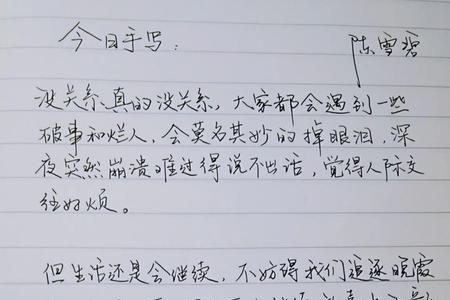 今日手写：
陈雪碧
没关系，真的没关系，大家都会遇到一些
破事和烂人，会莫名其妙的掉眼泪，深
夜突然崩溃难过得说不出话，觉得人际交
往好烦。
但生活还是会继续，不妨碍我们追逐晚霞